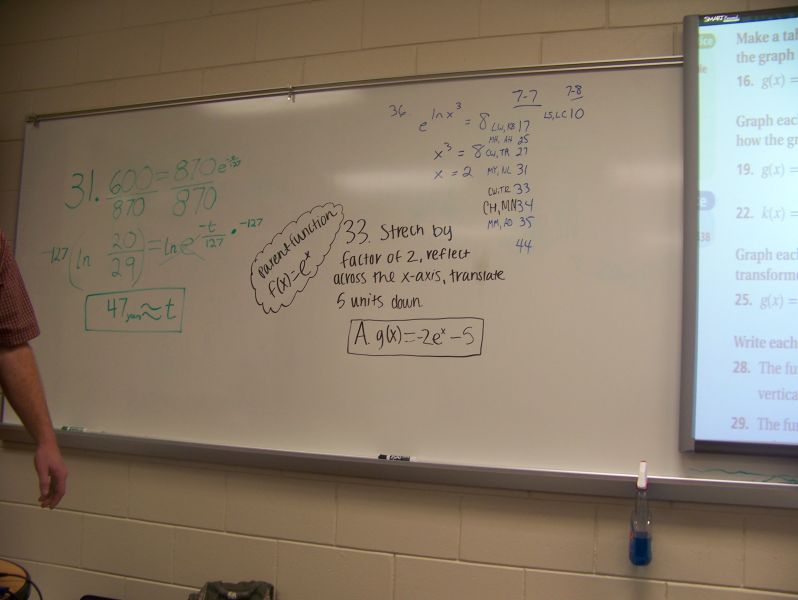 31. 600 = 870e^-t/127
870 870
-127 (ln 20/29) = ln e^-t/127 • -127
47 years ≈ t
Parent function
f(x)=e^x
36. e^ln x^3 = 8
x^3 = 8
x = 2
33. Strech by
factor of 2, reflect
across the x-axis, translate
5 units down
A. g(x)=-2e^x -5
7-7
LW, KB 17
MH, AH 25
CW, TR 27
MY, NL 31
CW, TR 33
CH, MN 34
MM, AD 35
44
7-8
LS, LC 10
SMART Board
Make a tab
the graph
16. g(x) =
Graph eac
how the gr
19. g(x) =
22. k(x) =
38
Graph each
transform
25. g(x) =
Write each
28. The fu
vertica
29. The fu